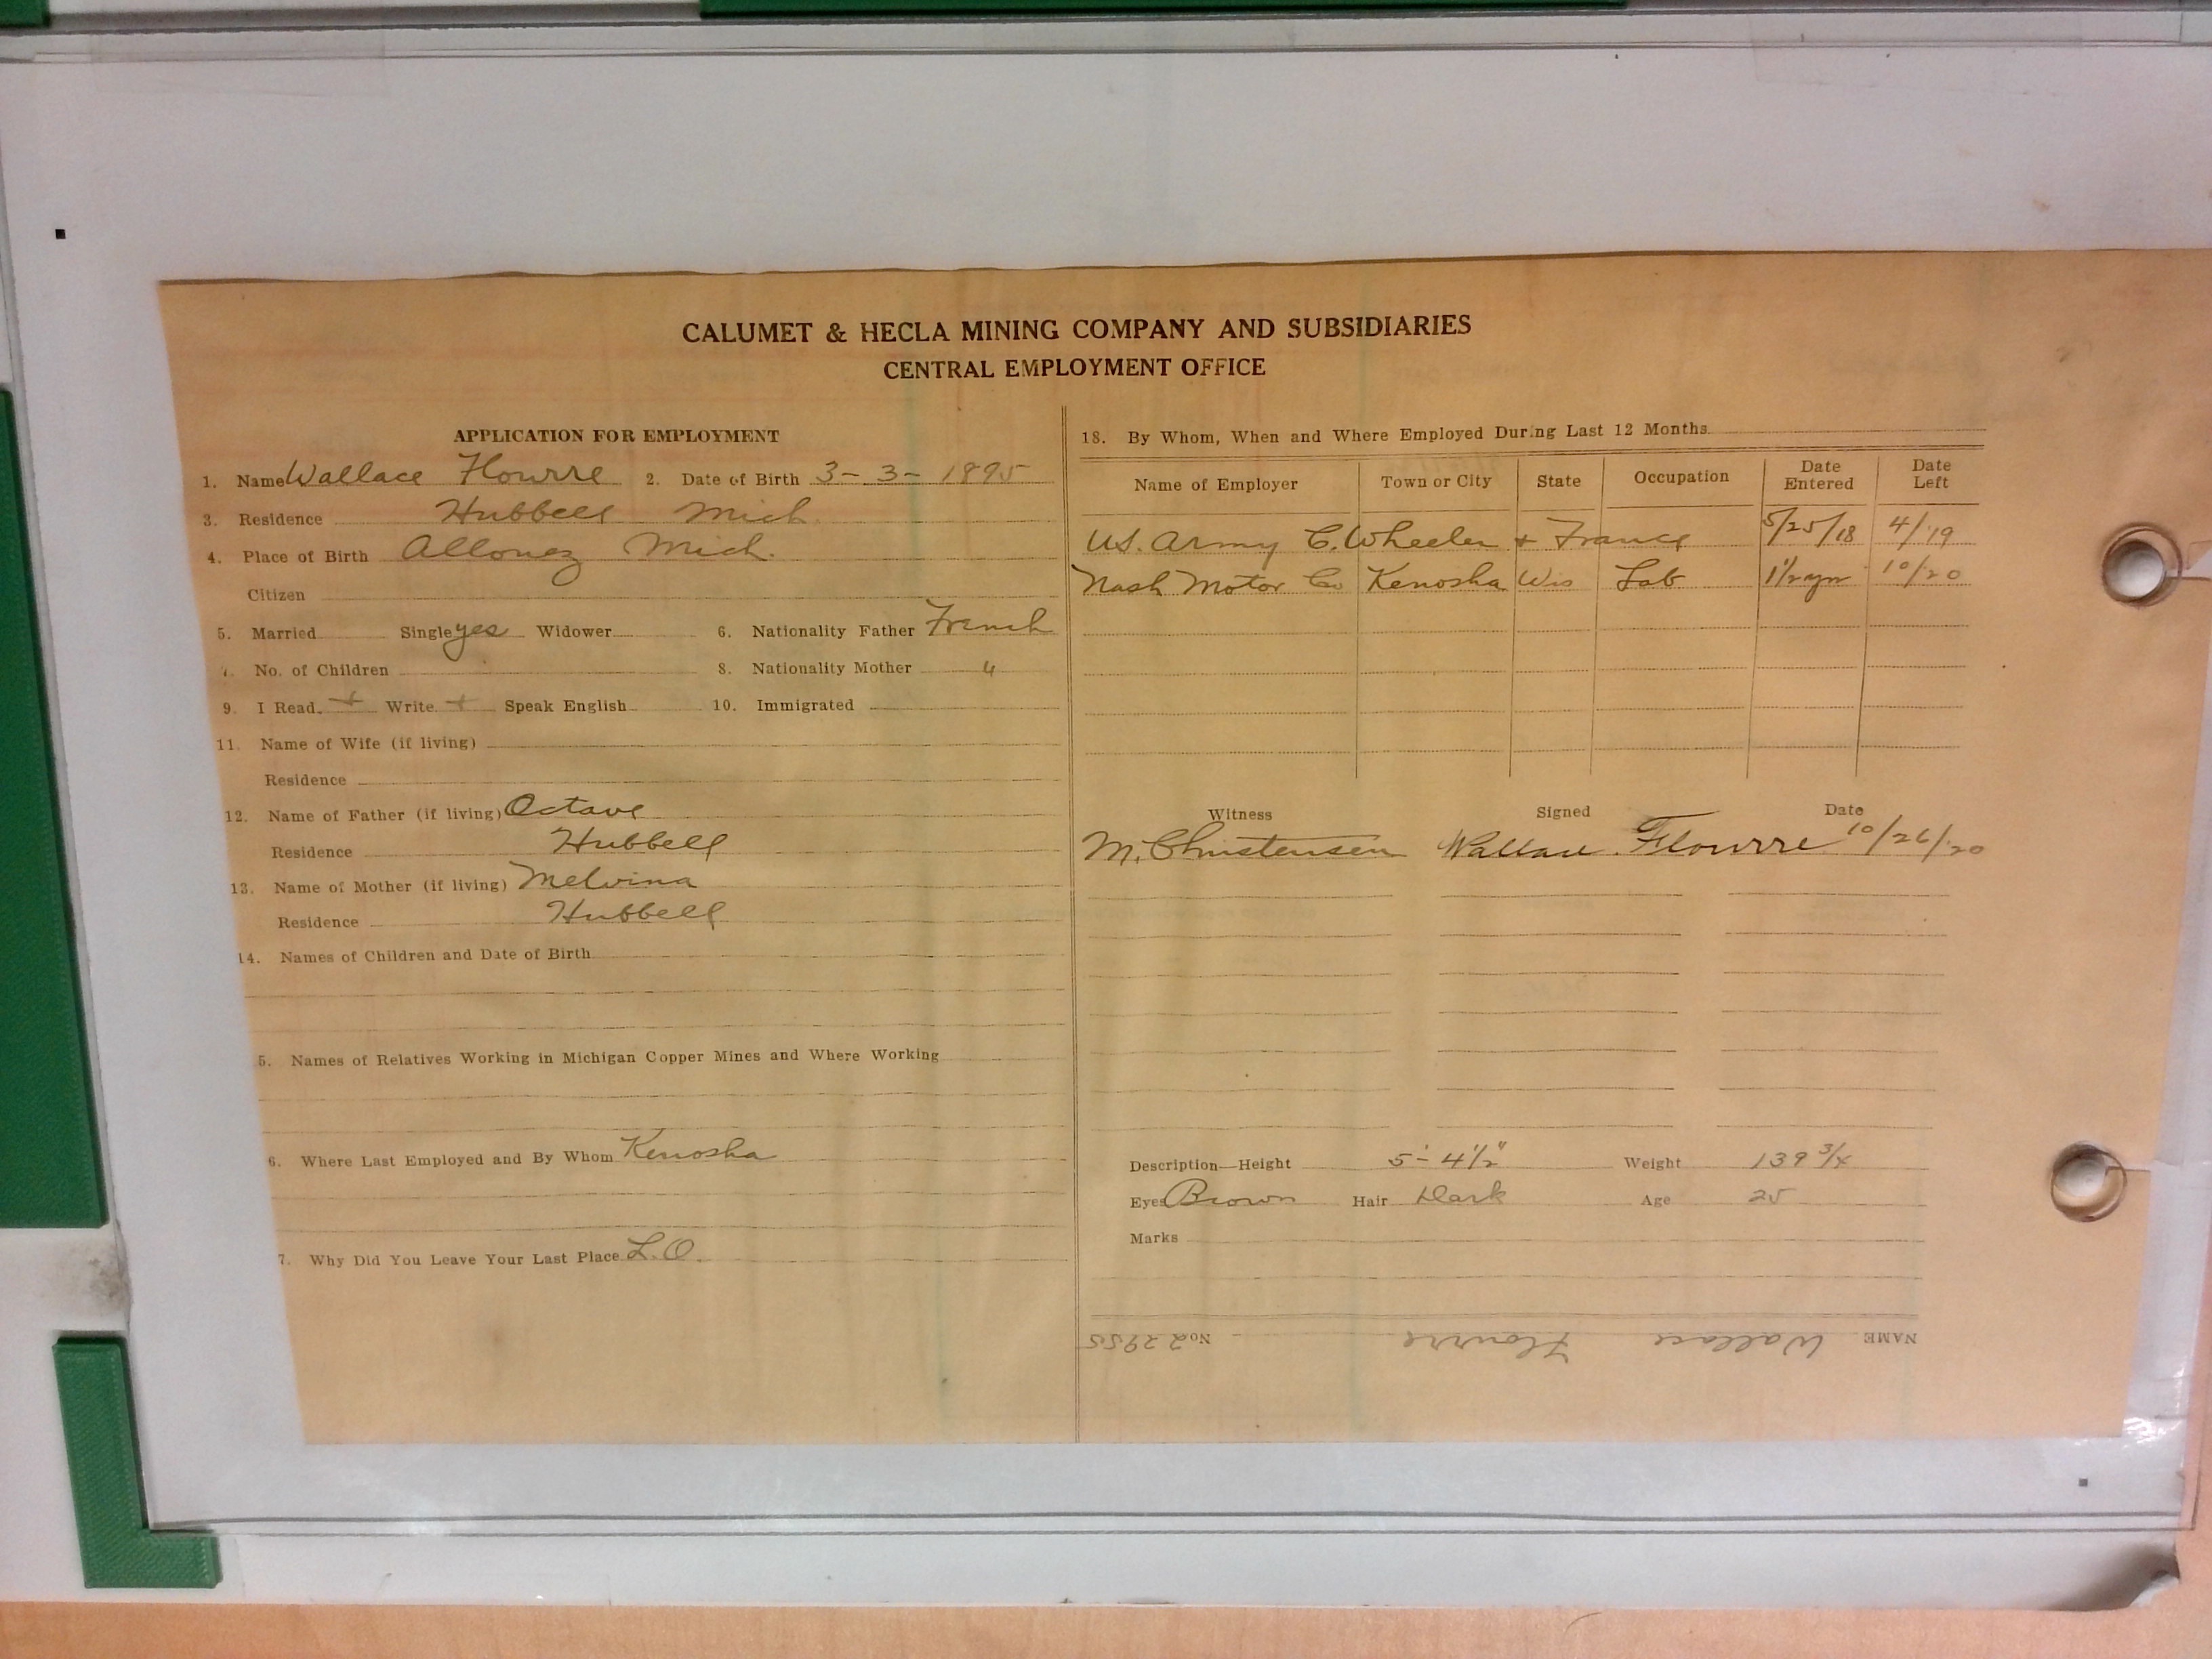 CALUMET & HECLA MINING COMPANY AND SUBSIDIARIES
CENTRAL EMPLOYMENT OFFICE
APPLICATION FOR EMPLOYMENT
1. Name Wallace Flourre 2. Date of Birth 3-3-1895
3. Residence Hubbell Mich
4. Place of Birth Allouez Mich.
Citizen
5. Married Single yes Widower 6. Nationality Father French
7. No. of Children 8. Nationality Mother "
9. I Read + Write + Speak English 10. Immigrated
11. Name of Wife (if living)
Residence
12. Name of Father (if living) Octave
Residence Hubbell
13. Name of Mother (if living) Melvina
Residence Hubbell
14. Names of Children and Date of Birth
5. Names of Relatives Working in Michigan Copper Mines and Where Working
6. Where Last Employed and By Whom Kenosha
7. Why Did You Leave Your Last Place L.O.
18. By Whom, When and Where Employed During Last 12 Months
Name of Employer Town or City State Occupation Date Entered Date Left
U.S. Army C. Wheeler + France 5/25/18 4/19
Nash Motor Co Kenosha Wis Lab 1 1/2 yr 10/20
Witness Signed Date
M. Christensen Wallace Flourre 10/26/20
Description—Height 5'-4 1/2" Weight 139 3/4
Eyes Brown Hair Dark Age 25
Marks
NAME Wallace Flourre No. 22955